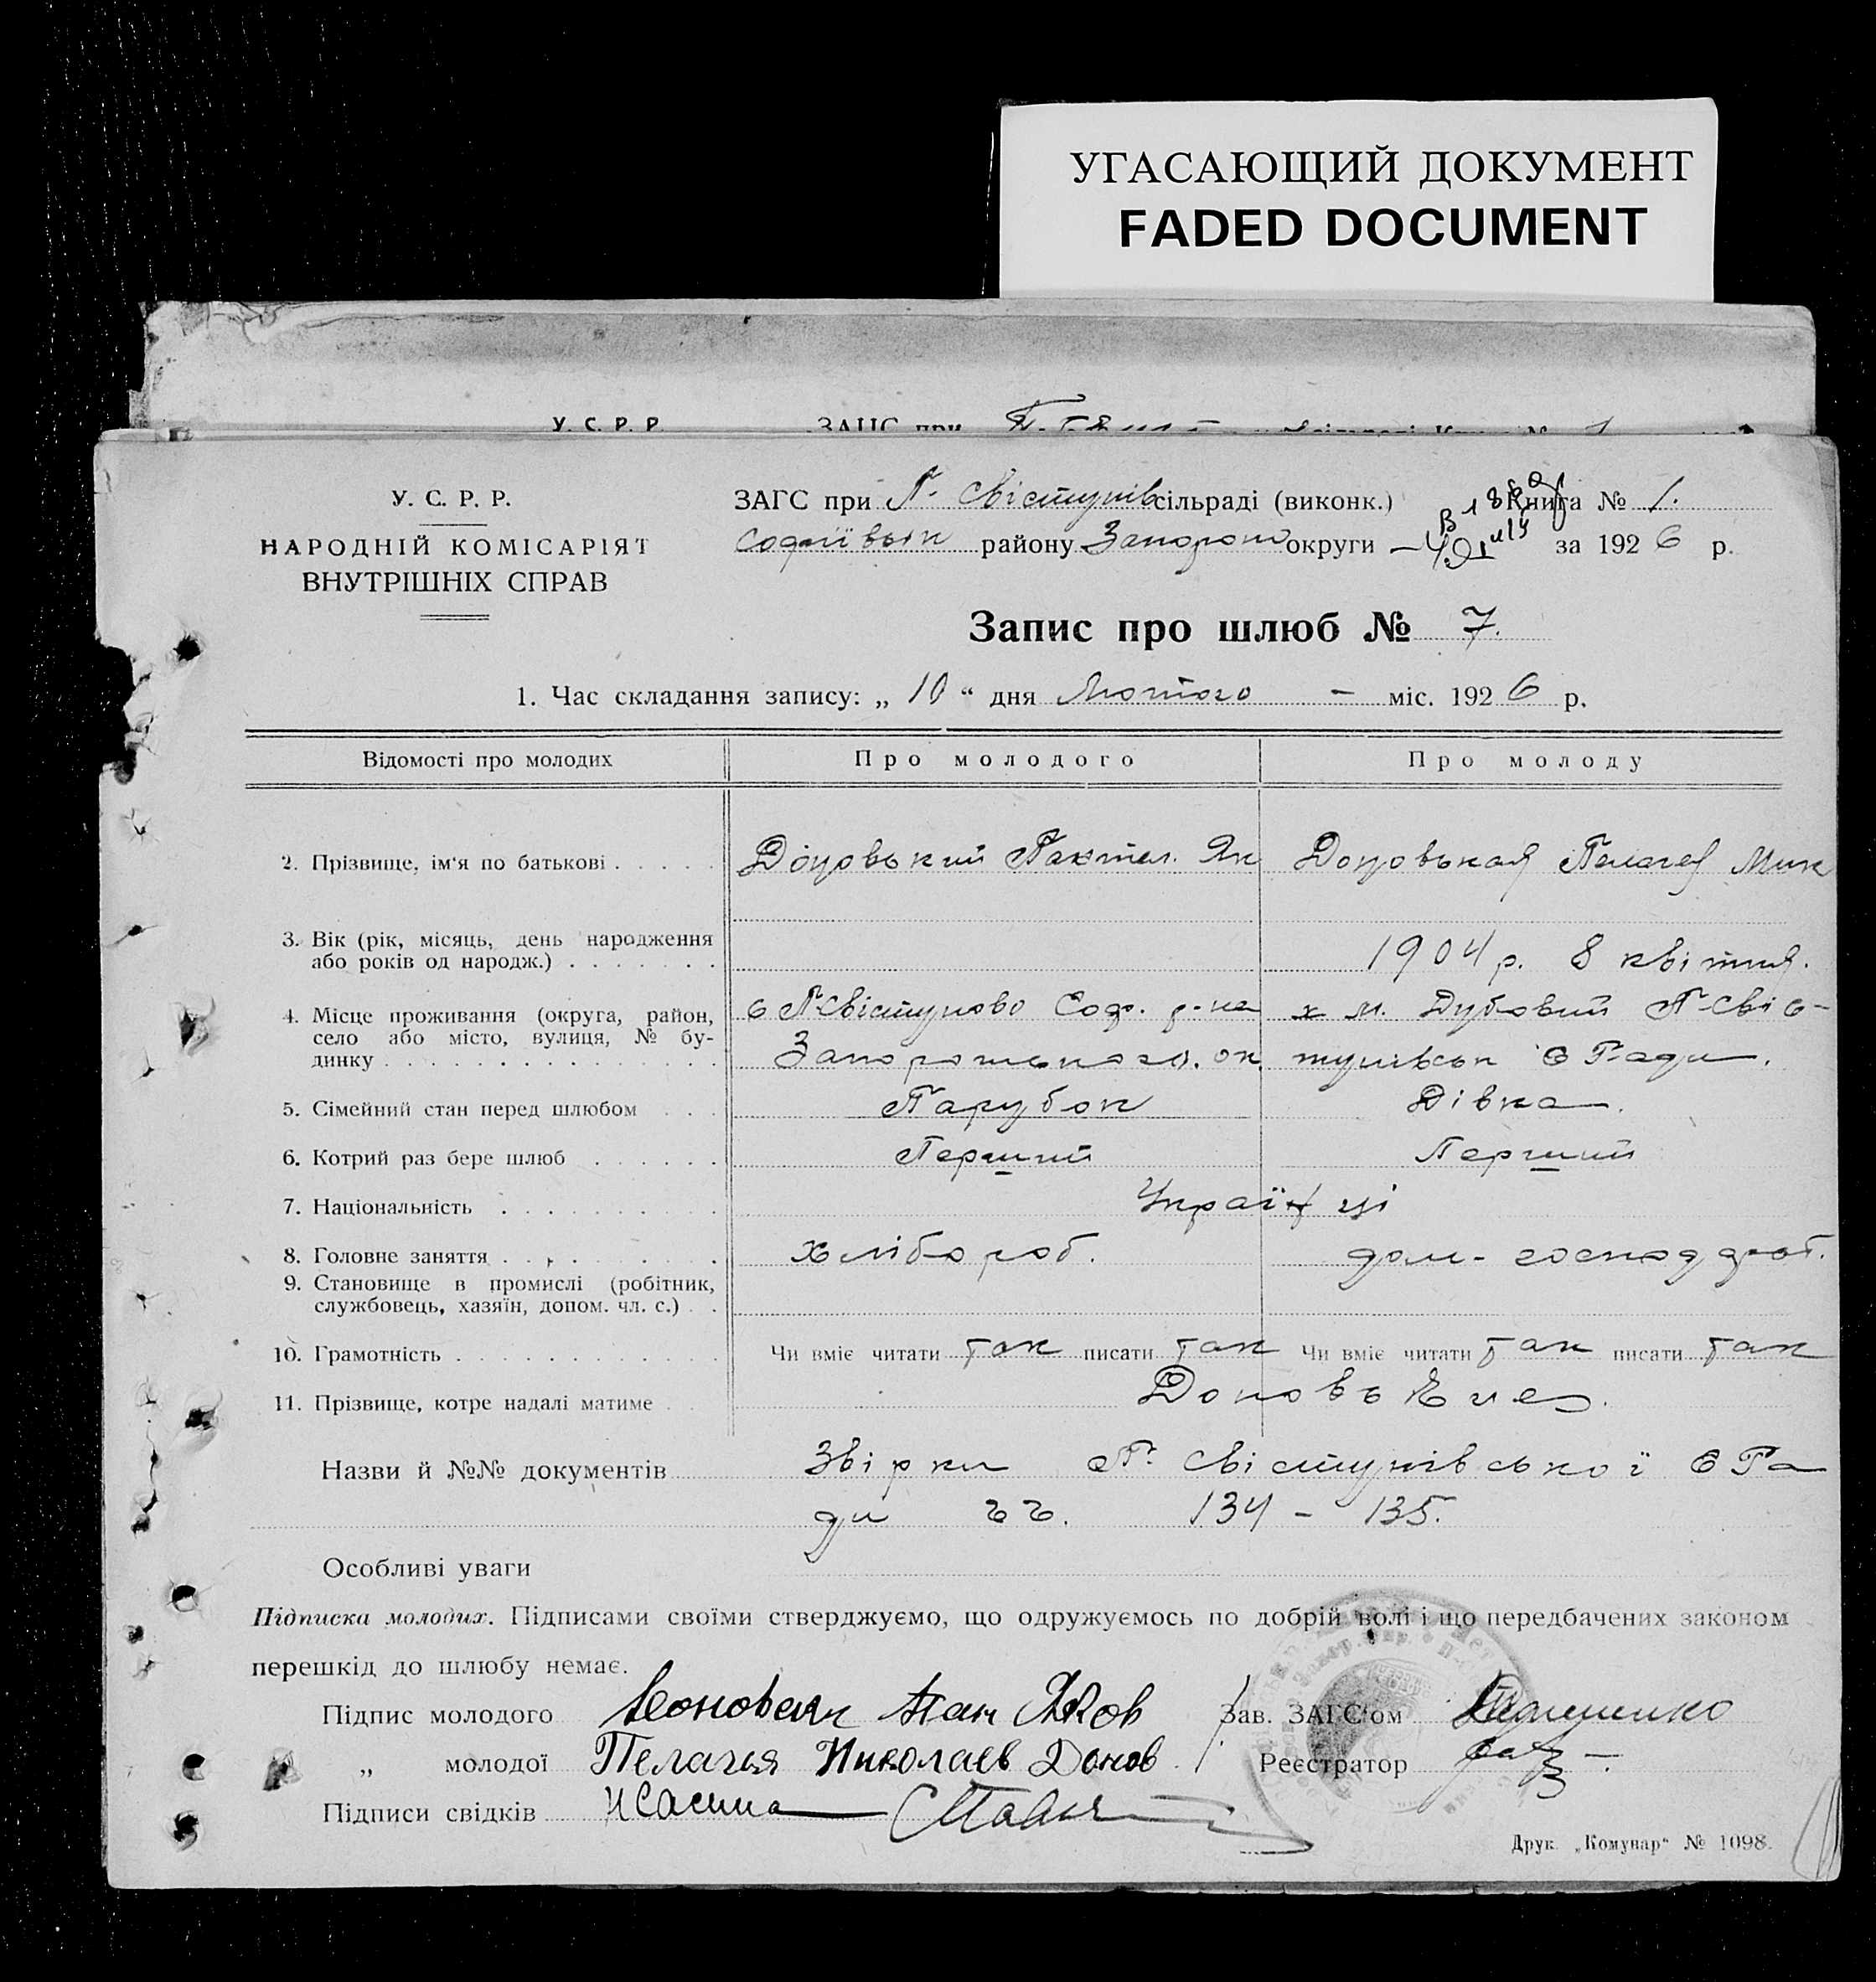 УГАСАЮЩИЙ ДОКУМЕНТ
FADED DOCUMENT
У. С. Р. Р. ЗАГС при
У. С. Р. Р.
НАРОДНІЙ КОМІСАРІЯТ
ВНУТРІШНІХ СПРАВ
ЗАГС при П. Свістунів сільраді (виконк.) Книга № 1.
району Запорож округи за 1926 р.
Запис про шлюб № 7.
1. Час складання запису: „ 10 “ дня Лютого – міс. 1926 р.
Відомості про молодих Про молодого Про молоду
2. Прізвище, ім‘я по батькові Як Пелагея Мик
3. Вік (рік, місяць, день народження
або років од народж.) 1904 р. 8 квітня.
4. Місце проживання (округа, район, с П-Свістуново Соф. р-на х м. Дубовий П-Свіс-
село або місто, вулиця, № бу- Запорожського. ок. тунівськ С Ради.
динку
5. Сімейний стан перед шлюбом Парубок Дівка.
6. Котрий раз бере шлюб Перший Перший
7. Національність Українці
8. Головне заняття хлібороб. дом-
9. Становище в промислі (робітник,
службовець, хазяїн, допом. чл. с.)
10. Грамотність Чи вміє читати так писати так Чи вміє читати так писати так
11. Прізвище, котре надалі матиме
Назви й №№ документів Звірки П. Свістунівської С Ра
ди 134 – 135.
Особливі уваги
Підписка молодих. Підписами своїми стверджуємо, що одружуємось по добрій волі і що передбачених законом
перешкід до шлюбу немає.
Підпис молодого Яков Зав. ЗАГС‘ом
„ молодої Пелагея Николаев Донов Реєстратор
Підписи свідків
Друк. „Комунар“ № 1098.